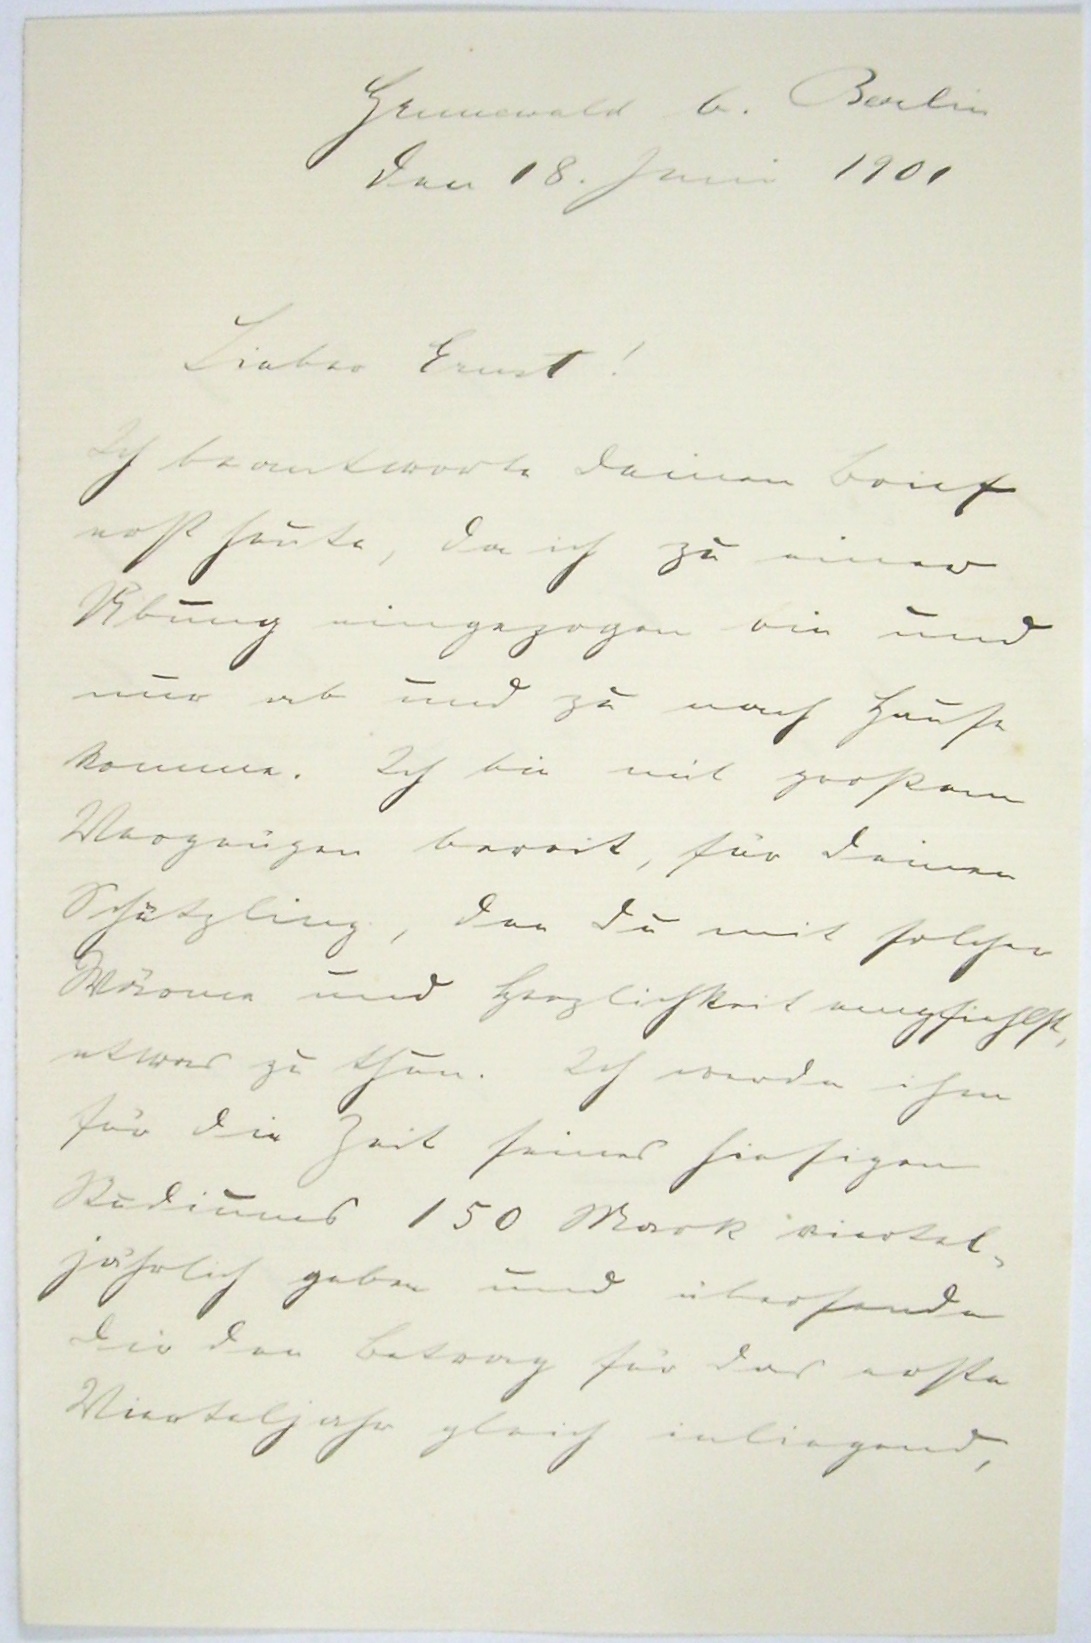 Grunewald b. Berlin
den 18. Juni 1901
Lieber Ernst!
Ich beantworte Deinen Brief
erst heute, da ich zu einer
Übung eingezogen bin und
nur ab und zu nach Hause
komme. Ich bin mit großem
Vergnügen bereit, für Deinen
Schützling, den Du mit solcher
Wärme und Herzlichkeit empfiehlst,
etwas zu thun. Ich werde ihm
für die Zeit seines hiesigen
Studiums 150 Mark viertel-
jährlich geben und übersende
Dir den Betrag für das erste
Vierteljahr gleich inliegend,